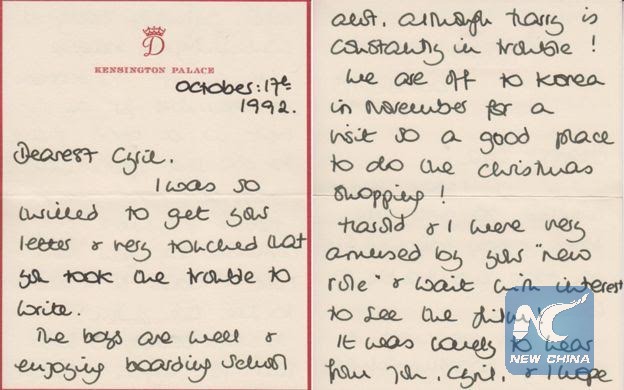 D
KENSINGTON PALACE
October: 17th
1992.
Dearest Cyril.
I was so
thrilled to get your
letter & very touched that
you took the trouble to
write.
The boys are well &
enjoying boarding school
alot, although Harry is
constantly in trouble!
We are off to Korea
in November for a
visit so a good place
to do the Christmas
shopping!
Harold & I were very
amused by your "new
role" & wait with interest
to see the
It was lovely to hear
from you, Cyril, & I hope
NC
NEW CHINA